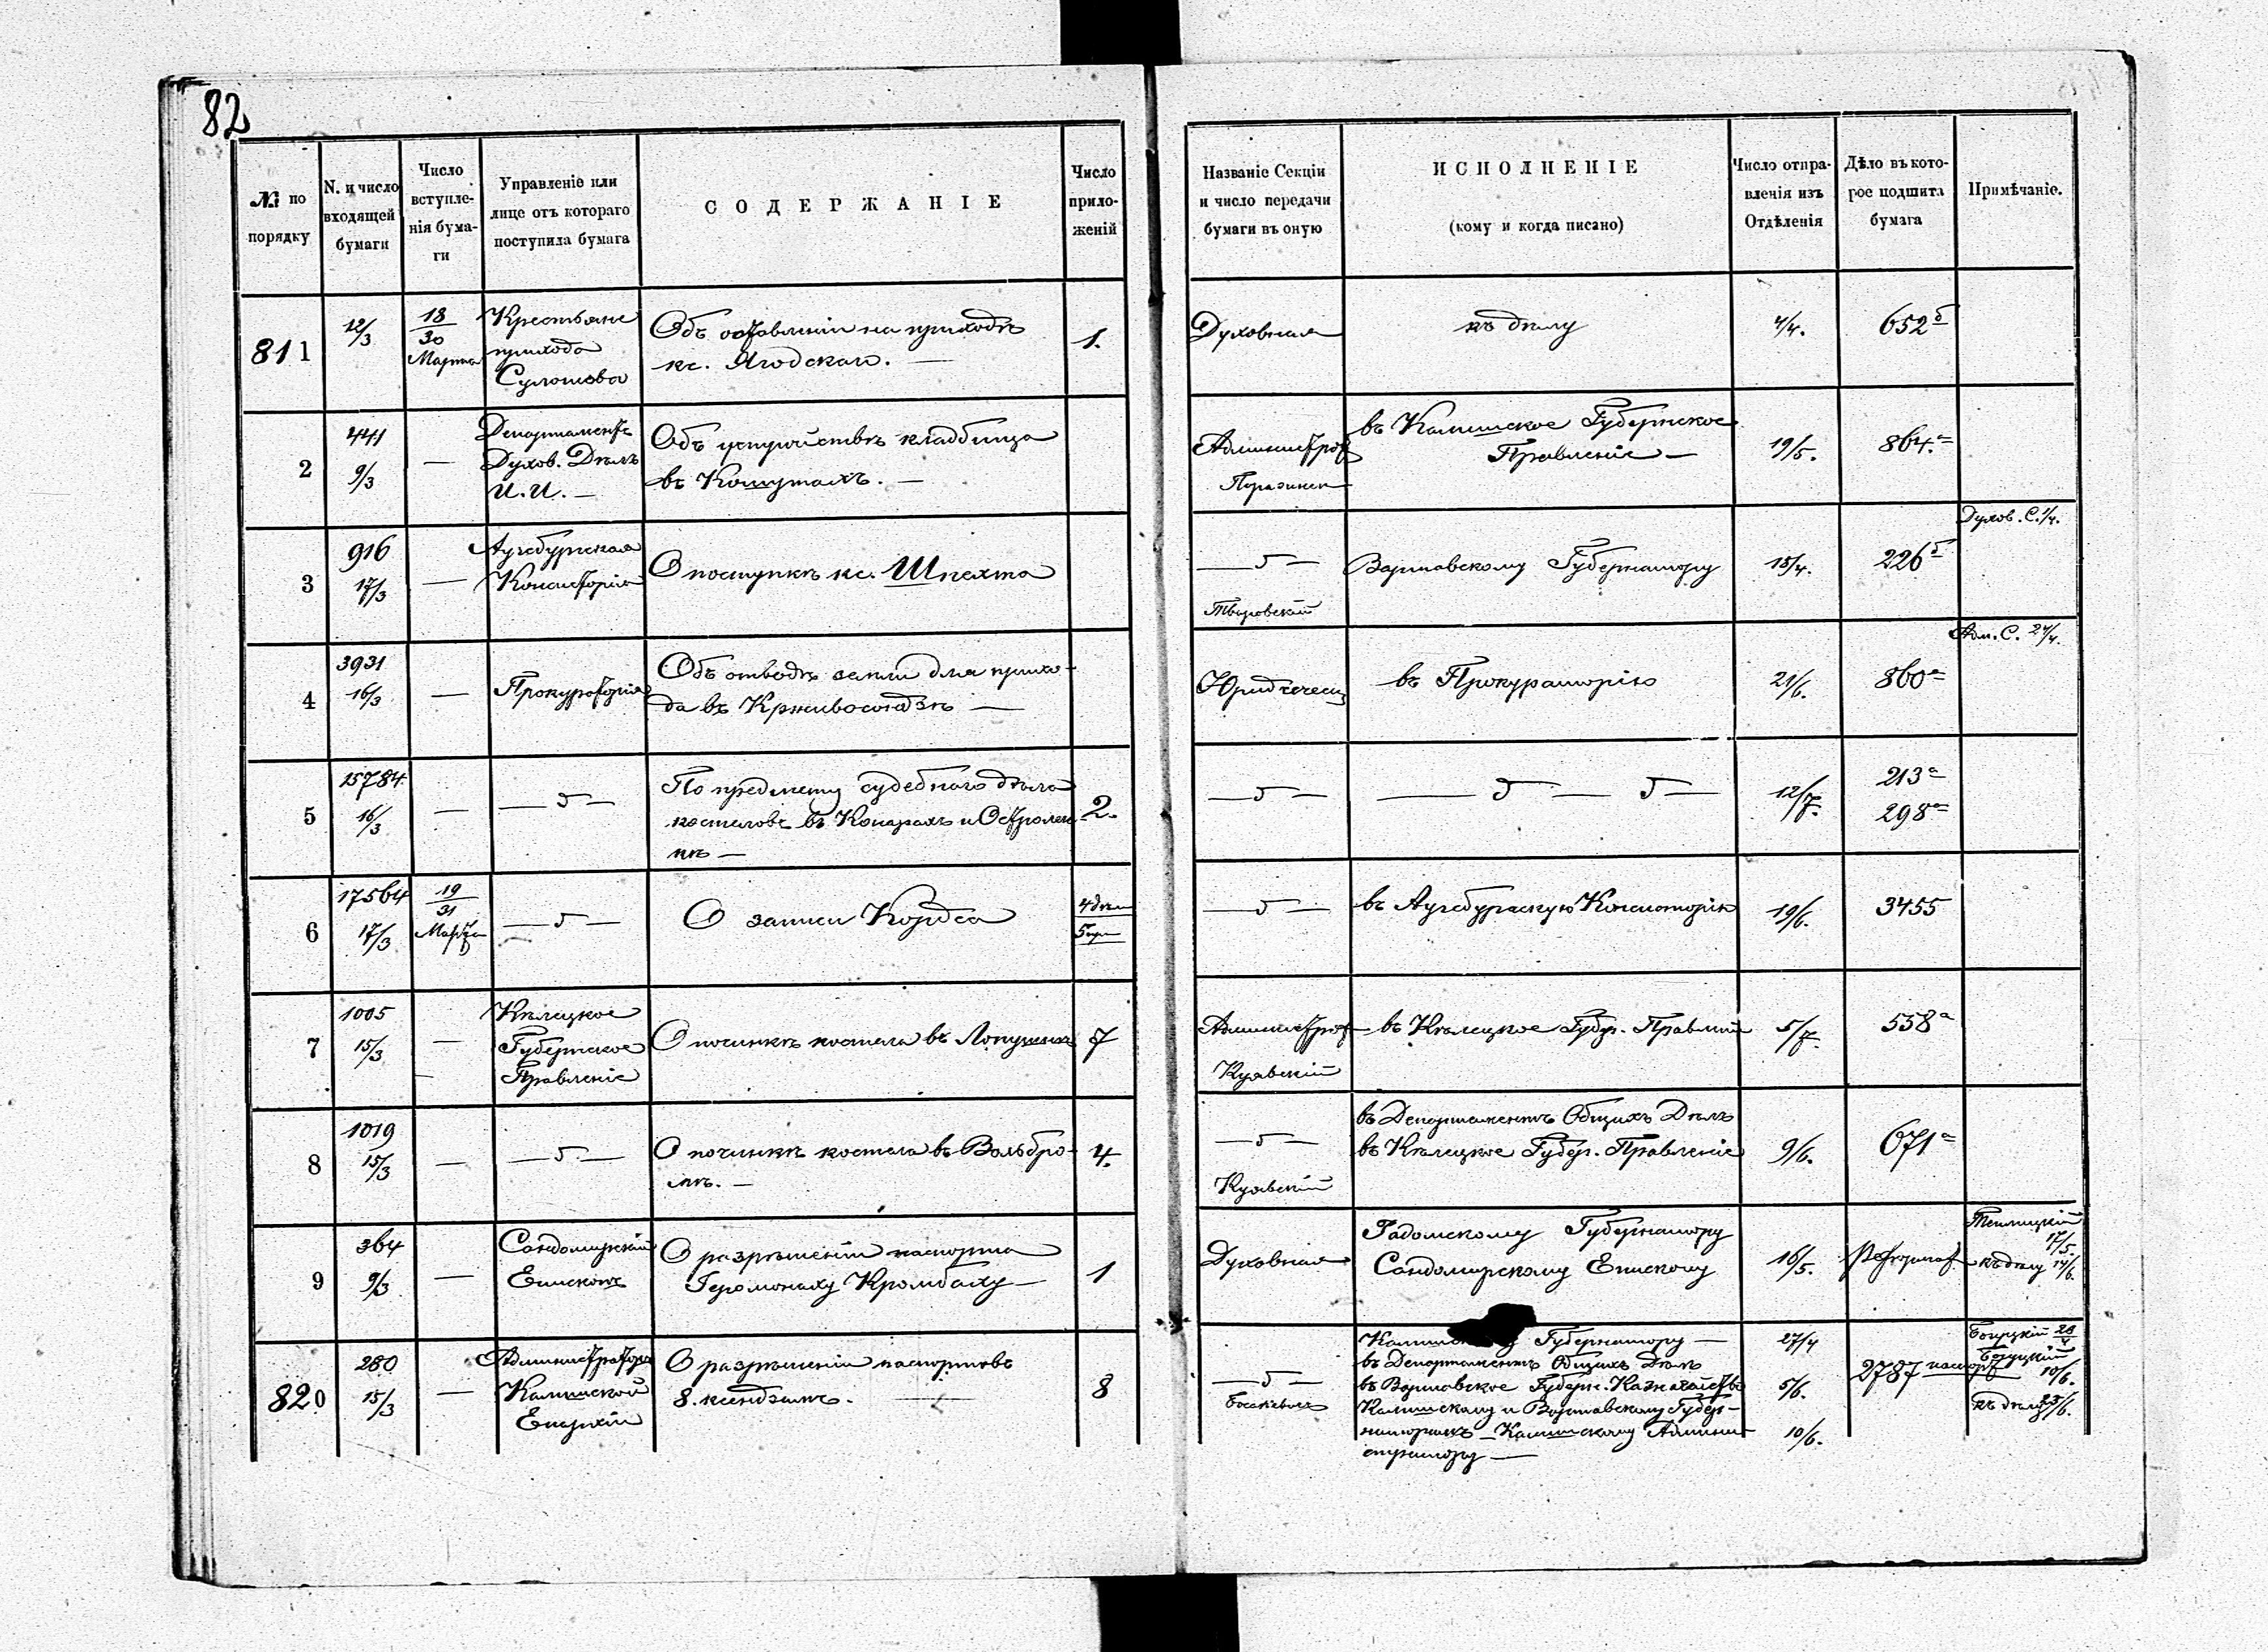 82
№ по порядку
N. и число входящей бумаги
Число вступленія бумаги
Управленіе или лице отъ котораго поступила бумага
СОДЕРЖАНІЕ
Число приложеній
Названіе Секціи и число передачи бумаги въ оную
ИСПОЛНЕНІЕ
(кому и когда писано)
Число отправленія изъ Отдѣленія
Дѣло въ которое подшита бумага
Примѣчаніе.
811
12/3
18/30 Марта
Крестьяне
прихода
Сулошова
Объ оставленіи на приходѣ
кс. Ягодскаго. —
1.
Духовная
къ дѣлу
4/4.
652б
2
441
9/3
—
Департаментъ
Духов. Дѣлъ
И. И. —
Объ устройствѣ кладбища
въ Кошутахъ. —
Администрат
въ Калишское Губернское
Правленіе —
19/5.
864.а
3
916
17/3
—
Аугсбургская
Консисторія
О поступкѣ кс. Шпехта
— „ —
Варшавскому Губернатору
15/4.
226б
Духов. С. 1/4.
4
3931
16/3
—
Прокураторія
Объ отводѣ земли для прихо-
да въ Крживосондзѣ —
Юридическ
въ Прокураторію
21/6.
860а
Адм. С. 24/4.
5
15784
16/3
—
— „ —
По предмету судебнаго дѣла
костеловъ въ Конарахъ и Остролен-
кѣ —
2.
— „ —
— „ — „ —
12/7.
213а
298а
6
17564
17/3
19/31 Марта
— „ —
О записи Кордса
4 дѣл
5
— „ —
въ Аугсбургскую Консисторію
19/6.
3455
7
1005
15/3
—
Кѣлецкое
Губернское
Правленіе
О починкѣ костела въ Лопушнѣ
7
Администрат
Куявскій
въ Кѣлецкое Губер. Правленіе
5/7.
558а
8
1019
15/3
—
— „ —
О починкѣ костела въ Вольбро-
мѣ. —
4.
— „ —
Куявскій
въ Департаментъ Общихъ Дѣлъ
въ Кѣлецкое Губер. Правленіе
9/6.
671а
9
364
9/3
—
Сандомирскій
Епископъ
О разрѣшеніи паспорта
Іеромонаху Кромбаху —
1
Духовная
Радомскому Губернатору
Сандомирскому Епископу
16/5.
17/5.
къ дѣлу 14/6.
820
280
15/3
—
Администраторъ
Калишской
Епархіи
О разрѣшеніи паспортовъ
8. ксендзамъ. —
8
— „ —
Калишскому Губернатору —
въ Департаментъ Общихъ Дѣлъ
въ Варшавское Губерн. Казначейство
Калишскому и Варшавскому Губер-
наторамъ — Калишскому Админи-
стратору —
27/4
5/6.
10/6.
2787
10/6.
къ дѣлу 23/6.